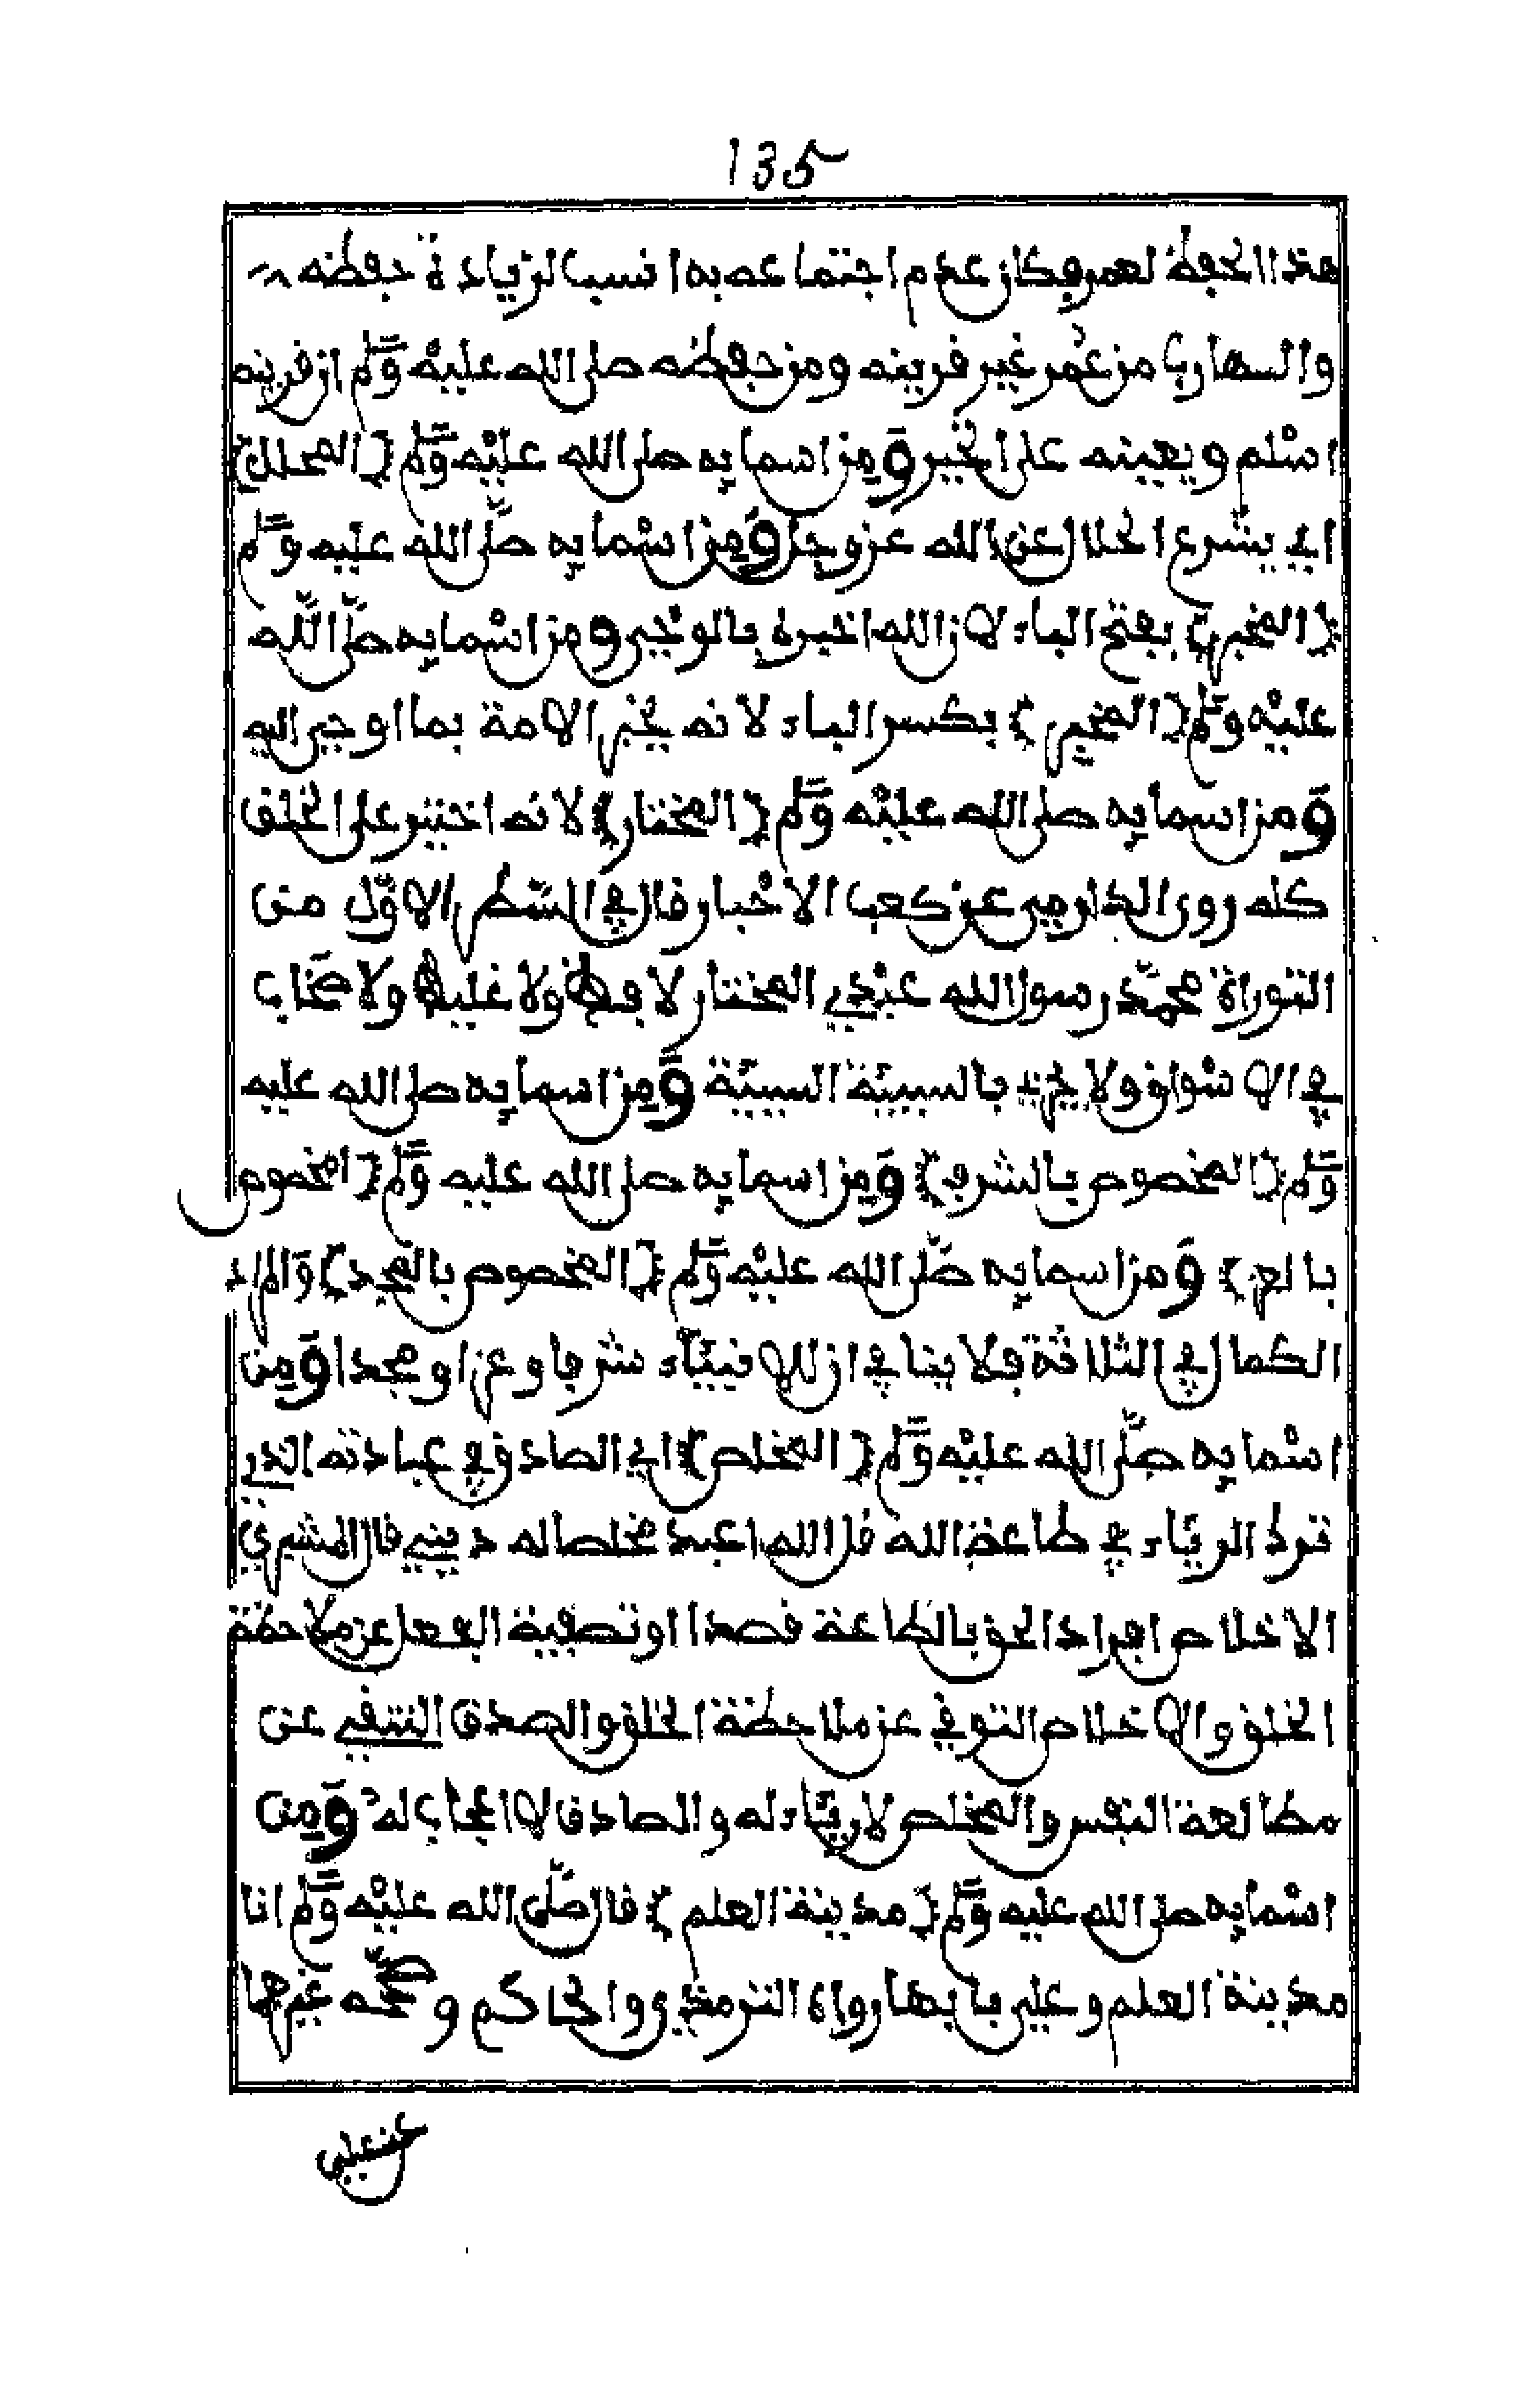 135
هذا الحفظ لعمر وكان عدم اجتماعه به انسب لزيادة حفظه
والهارب من عمر غير قرينه ومن حفظه صلى الله عليه وسلم ان قرينه
اسلم ويعينه على الخير ومن اسمايه صلى الله عليه وسلم (المحلل)
اي بشرع الحلال عن الله عز وجل ومن اسمايه صلى الله عليه وسلم
(المخبر) بفتح الباء لان الله اخبره بالوحي ومن اسمايه صلى الله
عليه وسلم (المخبر) بكسر الباء لانه يخبر الامة بما اوحي اليه
ومن اسمايه صلى الله عليه وسلم (المختار) لانه اختير على الخلق
كله روى الدارمي عن كعب الاخبار قال في السطر الاول من
التوراة محمد رسول الله عبدي المختار لا فظ ولا غليظ ولا صخاب
في الاسواق ولا يجزء بالسيئة السيئة ومن اسمايه صلى الله عليه
وسلم (المخصوص بالشرف) ومن اسمايه صلى الله عليه وسلم (المخصوص
بالعز) ومن اسمايه صلى الله عليه وسلم (المخصوص بالمجد) والمراد
الكمال في الثلاثة فلا ينافي ان للانبياء شرفا وعزا ومجدا ومن
اسمايه صلى الله عليه وسلم (المخلص) اي الصادق في عبادته الذي
ترك الرياء في طاعة الله قل الله اعبد مخلصا له ديني قال القشيري
الاخلاص افراد الحق بالطاعة قصدا او تصفية الفعل عن ملاحظة
الخلق والاخلاص التوقي عن ملاحظة الخلق والصدق التنقي عن
مطالعة النفس والمخلص لا رياء له والصادق لا اعجاب له ومن
اسمايه صلى الله عليه وسلم (مدينة العلم) قال صلى الله عليه وسلم انا
مدينة العلم وعلي بابها رواه الترمذي والحاكم وصححه غيرهما